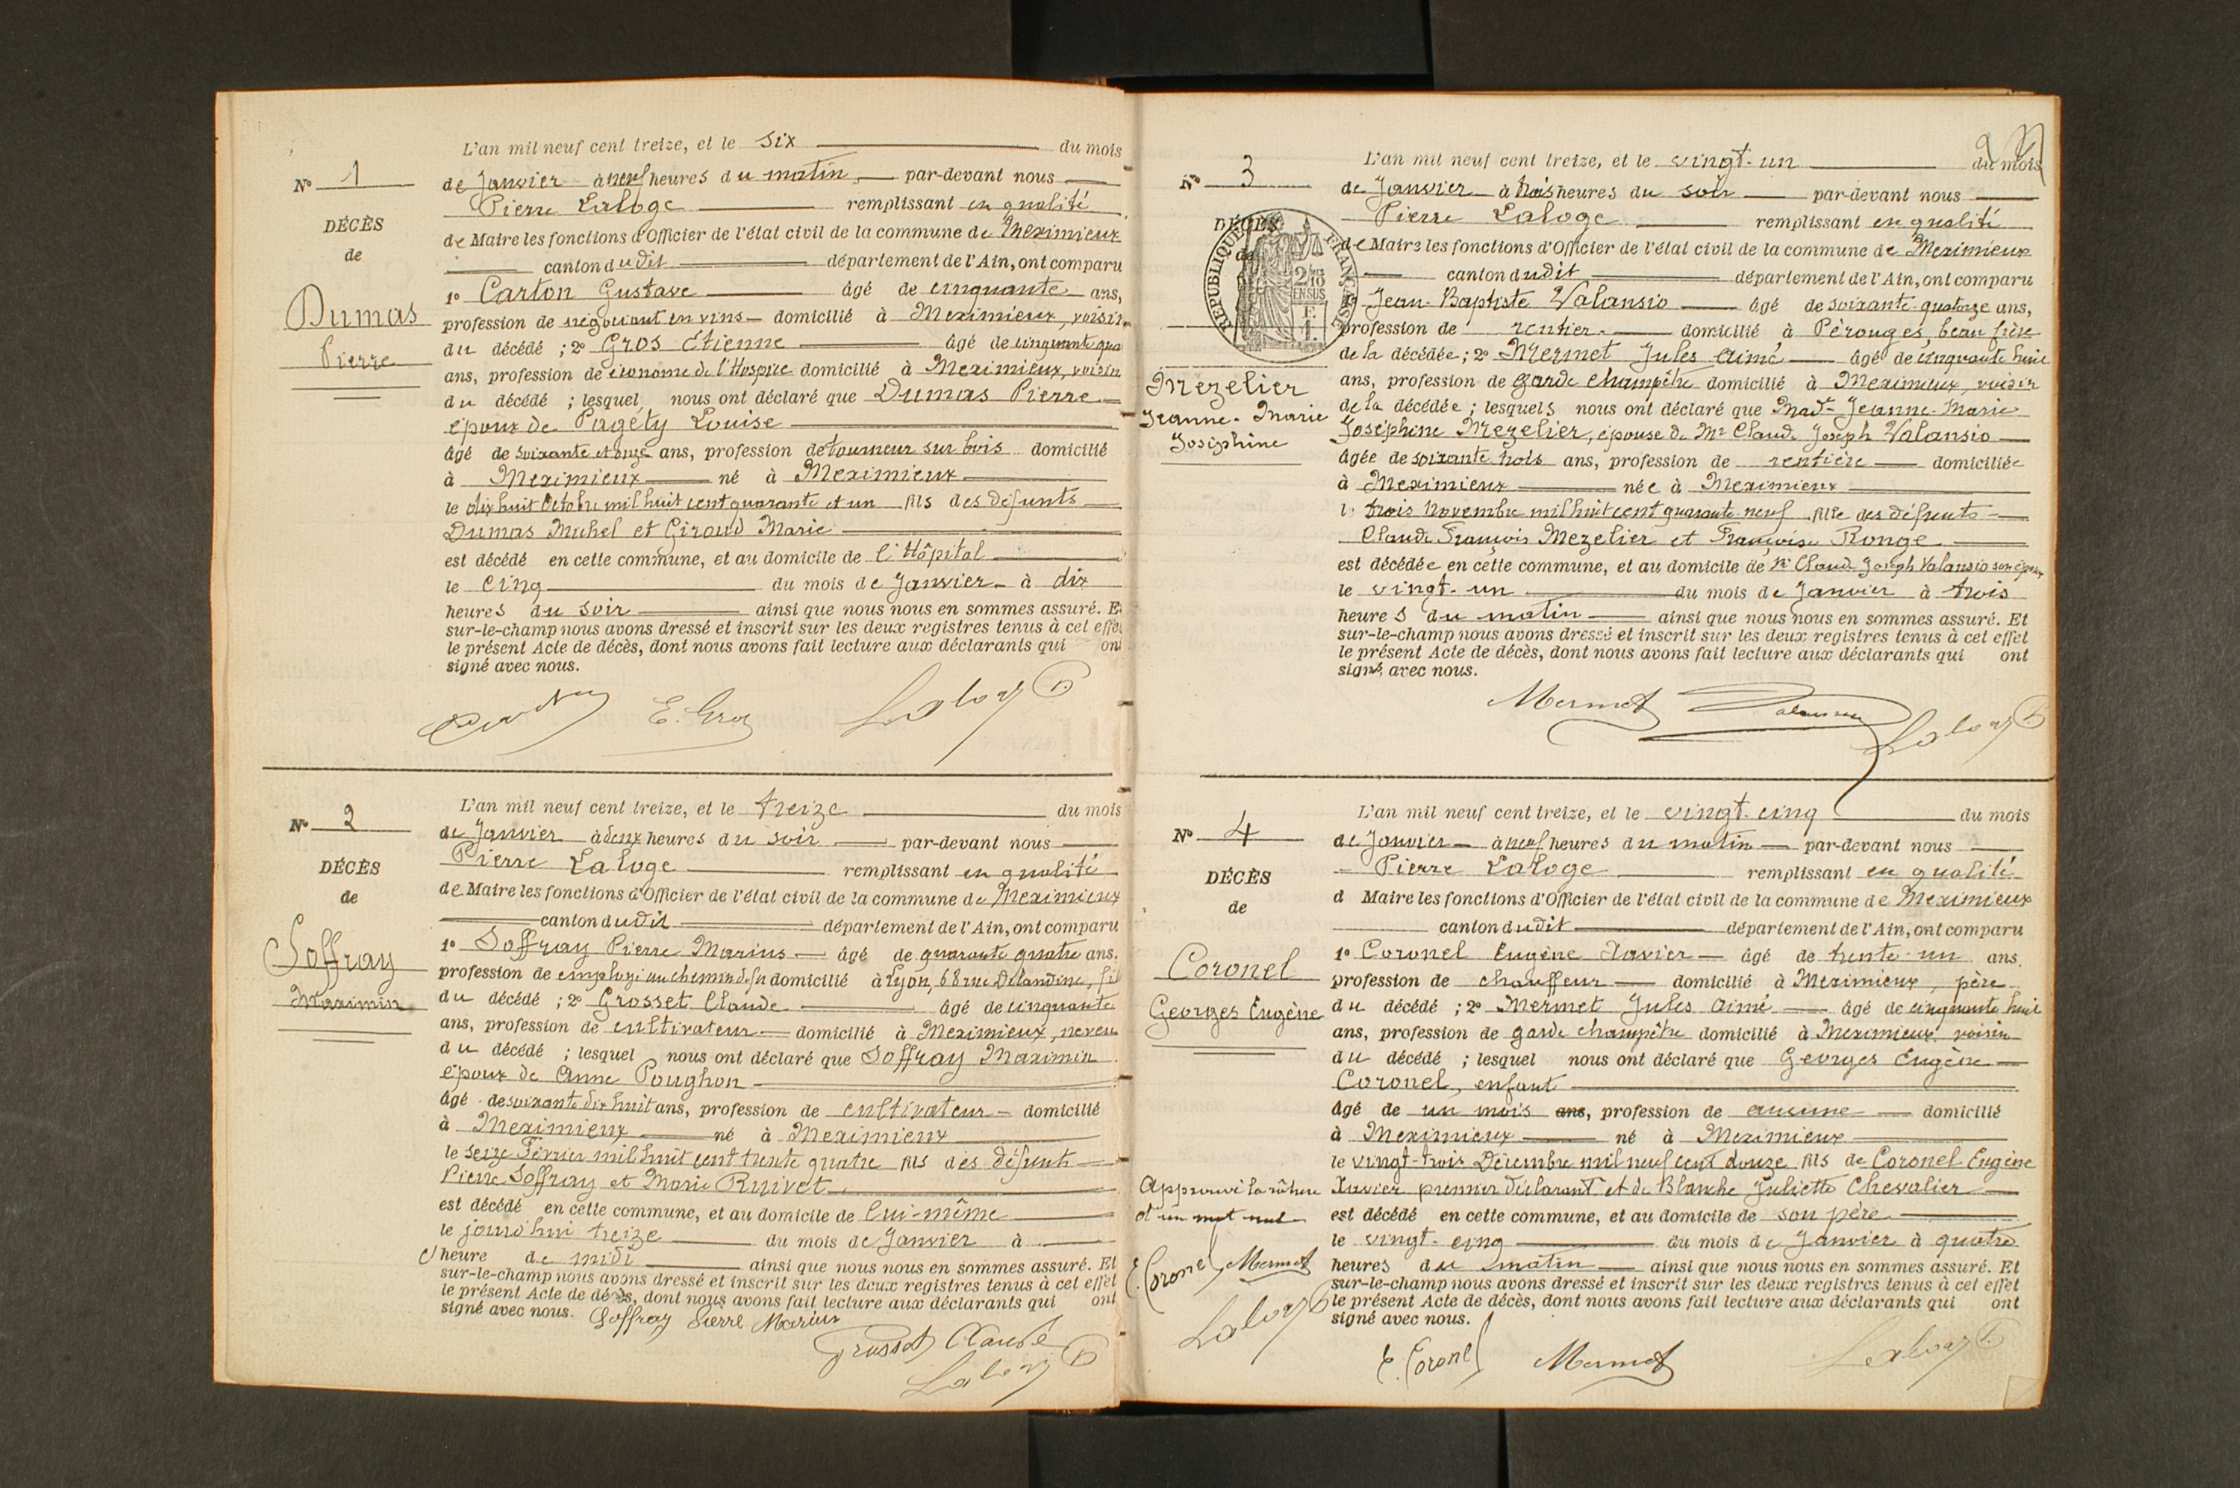 L'an mil neuf cent treize, et le six du mois
No 1
de Janvier à neuf heures du matin par-devant nous
Pierre Laloge remplissant en qualité
DÉCÈS
de Maire les fonctions d'Officier de l'état civil de la commune de Meximieux
de
canton dudit département de l'Ain, ont comparu
1o Carton Gustave âgé de cinquante ans,
Dumas
profession de négociant en vins domicilié à Meximieux, voisin
Pierre
du décédé ; 2o Gros Etienne âgé de cinquante qua
ans, profession de économe de l'Hospice domicilié à Meximieux, voisin
du décédé ; lesquel nous ont déclaré que Dumas Pierre
époux de Pagéty Louise
âgé de soixante et onze ans, profession de tourneur sur bois domicilié
à Meximieux né à Meximieux
le dix huit Octobre mil huit cent quarante et un fils des défunts
Dumas Michel et Giroud Marie
est décédé en cette commune, et au domicile de l'Hôpital
le cinq du mois de Janvier à dix
heures du soir ainsi que nous nous en sommes assuré. Et
sur-le-champ nous avons dressé et inscrit sur les deux registres tenus à cet effet
le présent Acte de décès, dont nous avons fait lecture aux déclarants qui ont
signé avec nous.
E. Gros Laloge P
L'an mil neuf cent treize, et le treize du mois
No 2
de Janvier à deux heures du soir par-devant nous
Pierre Laloge remplissant en qualité
DÉCÈS
de Maire les fonctions d'Officier de l'état civil de la commune de Meximieux
de
canton dudit département de l'Ain, ont comparu
1o Soffray Pierre Marius âgé de quarante quatre ans.
Soffray
profession de employé au chemin de fer domicilié à Lyon, 68 rue Delandine, fils
Maximin
du décédé ; 2o Grosset Claude âgé de cinquante
ans, profession de cultivateur domicilié à Meximieux, neveu
du décédé ; lesquel nous ont déclaré que Soffray Maximin
époux de Anne Poughon
âgé de soixante dix huit ans, profession de cultivateur domicilié
à Meximieux né à Meximieux
le seize Février mil huit cent trente quatre fils des défunts
Pierre Soffray et Marie Ruivet
est décédé en cette commune, et au domicile de lui-même
le jourd'hui treize du mois de Janvier à
heure de midi ainsi que nous nous en sommes assuré. Et
sur-le-champ nous avons dressé et inscrit sur les deux registres tenus à cet effet
le présent Acte de décès, dont nous avons fait lecture aux déclarants qui ont
signé avec nous. Soffray Pierre Marius
Grosset Claude
Laloge P
L'an mil neuf cent treize, et le vingt-un du mois
No 3
de Janvier à trois heures du soir par-devant nous
Pierre Laloge remplissant en qualité
DÉCÈS
de Maire les fonctions d'Officier de l'état civil de la commune de Meximieux
de
RÉPUBLIQUE FRANÇAISE
2/10 EN SUS
canton dudit département de l'Ain, ont comparu
1o Jean-Baptiste Valansio âgé de soixante-quatorze ans,
profession de rentier domicilié à Pérouges, beau frère
de la décédée ; 2o Mermet Jules Aimé âgé de cinquante huit
Mezelier
ans, profession de garde champêtre domicilié à Meximieux, voisin
Jeanne-Marie
de la décédée ; lesquels nous ont déclaré que Made Jeanne-Marie
Joséphine
Joséphine Mezelier, épouse de Mr Claude Joseph Valansio
âgée de soixante trois ans, profession de rentière domiciliée
à Meximieux née à Meximieux
le trois Novembre mil huit cent quarante neuf fille des défunts
Claude François Mezelier et Françoise Ronge
est décédée en cette commune, et au domicile de Mr Claude Joseph Valansio son époux
le vingt-un du mois de Janvier à trois
heures du matin ainsi que nous nous en sommes assuré. Et
sur-le-champ nous avons dressé et inscrit sur les deux registres tenus à cet effet
le présent Acte de décès, dont nous avons fait lecture aux déclarants qui ont
signé avec nous.
Mermet Valansio Laloge P
L'an mil neuf cent treize, et le vingt-cinq du mois
No 4
de Janvier à neuf heures du matin par-devant nous
Pierre Laloge remplissant en qualité
DÉCÈS
d Maire les fonctions d'Officier de l'état civil de la commune de Meximieux
de
canton dudit département de l'Ain, ont comparu
1o Coronel Eugène Xavier âgé de trente-un ans.
Coronel
profession de chauffeur domicilié à Meximieux, père
Georges Eugène
du décédé ; 2o Mermet Jules Aimé âgé de cinquante huit
ans, profession de garde champêtre domicilié à Meximieux voisin
du décédé ; lesquel nous ont déclaré que Georges Eugène
Coronel, enfant
âgé de un mois ans, profession de aucune domicilié
à Meximieux né à Meximieux
le vingt-trois Décembre mil neuf cent douze fils de Coronel Eugène
Approuvé la rature
Xavier premier déclarant et de Blanche Juliette Chevalier
d'un mot nul
est décédé en cette commune, et au domicile de son père
le vingt-cinq du mois de Janvier à quatre
E. Coronel Mermet
heures du matin ainsi que nous nous en sommes assuré. Et
sur-le-champ nous avons dressé et inscrit sur les deux registres tenus à cet effet
Laloge P
le présent Acte de décès, dont nous avons fait lecture aux déclarants qui ont
signé avec nous.
E. Coronel Mermet Laloge P